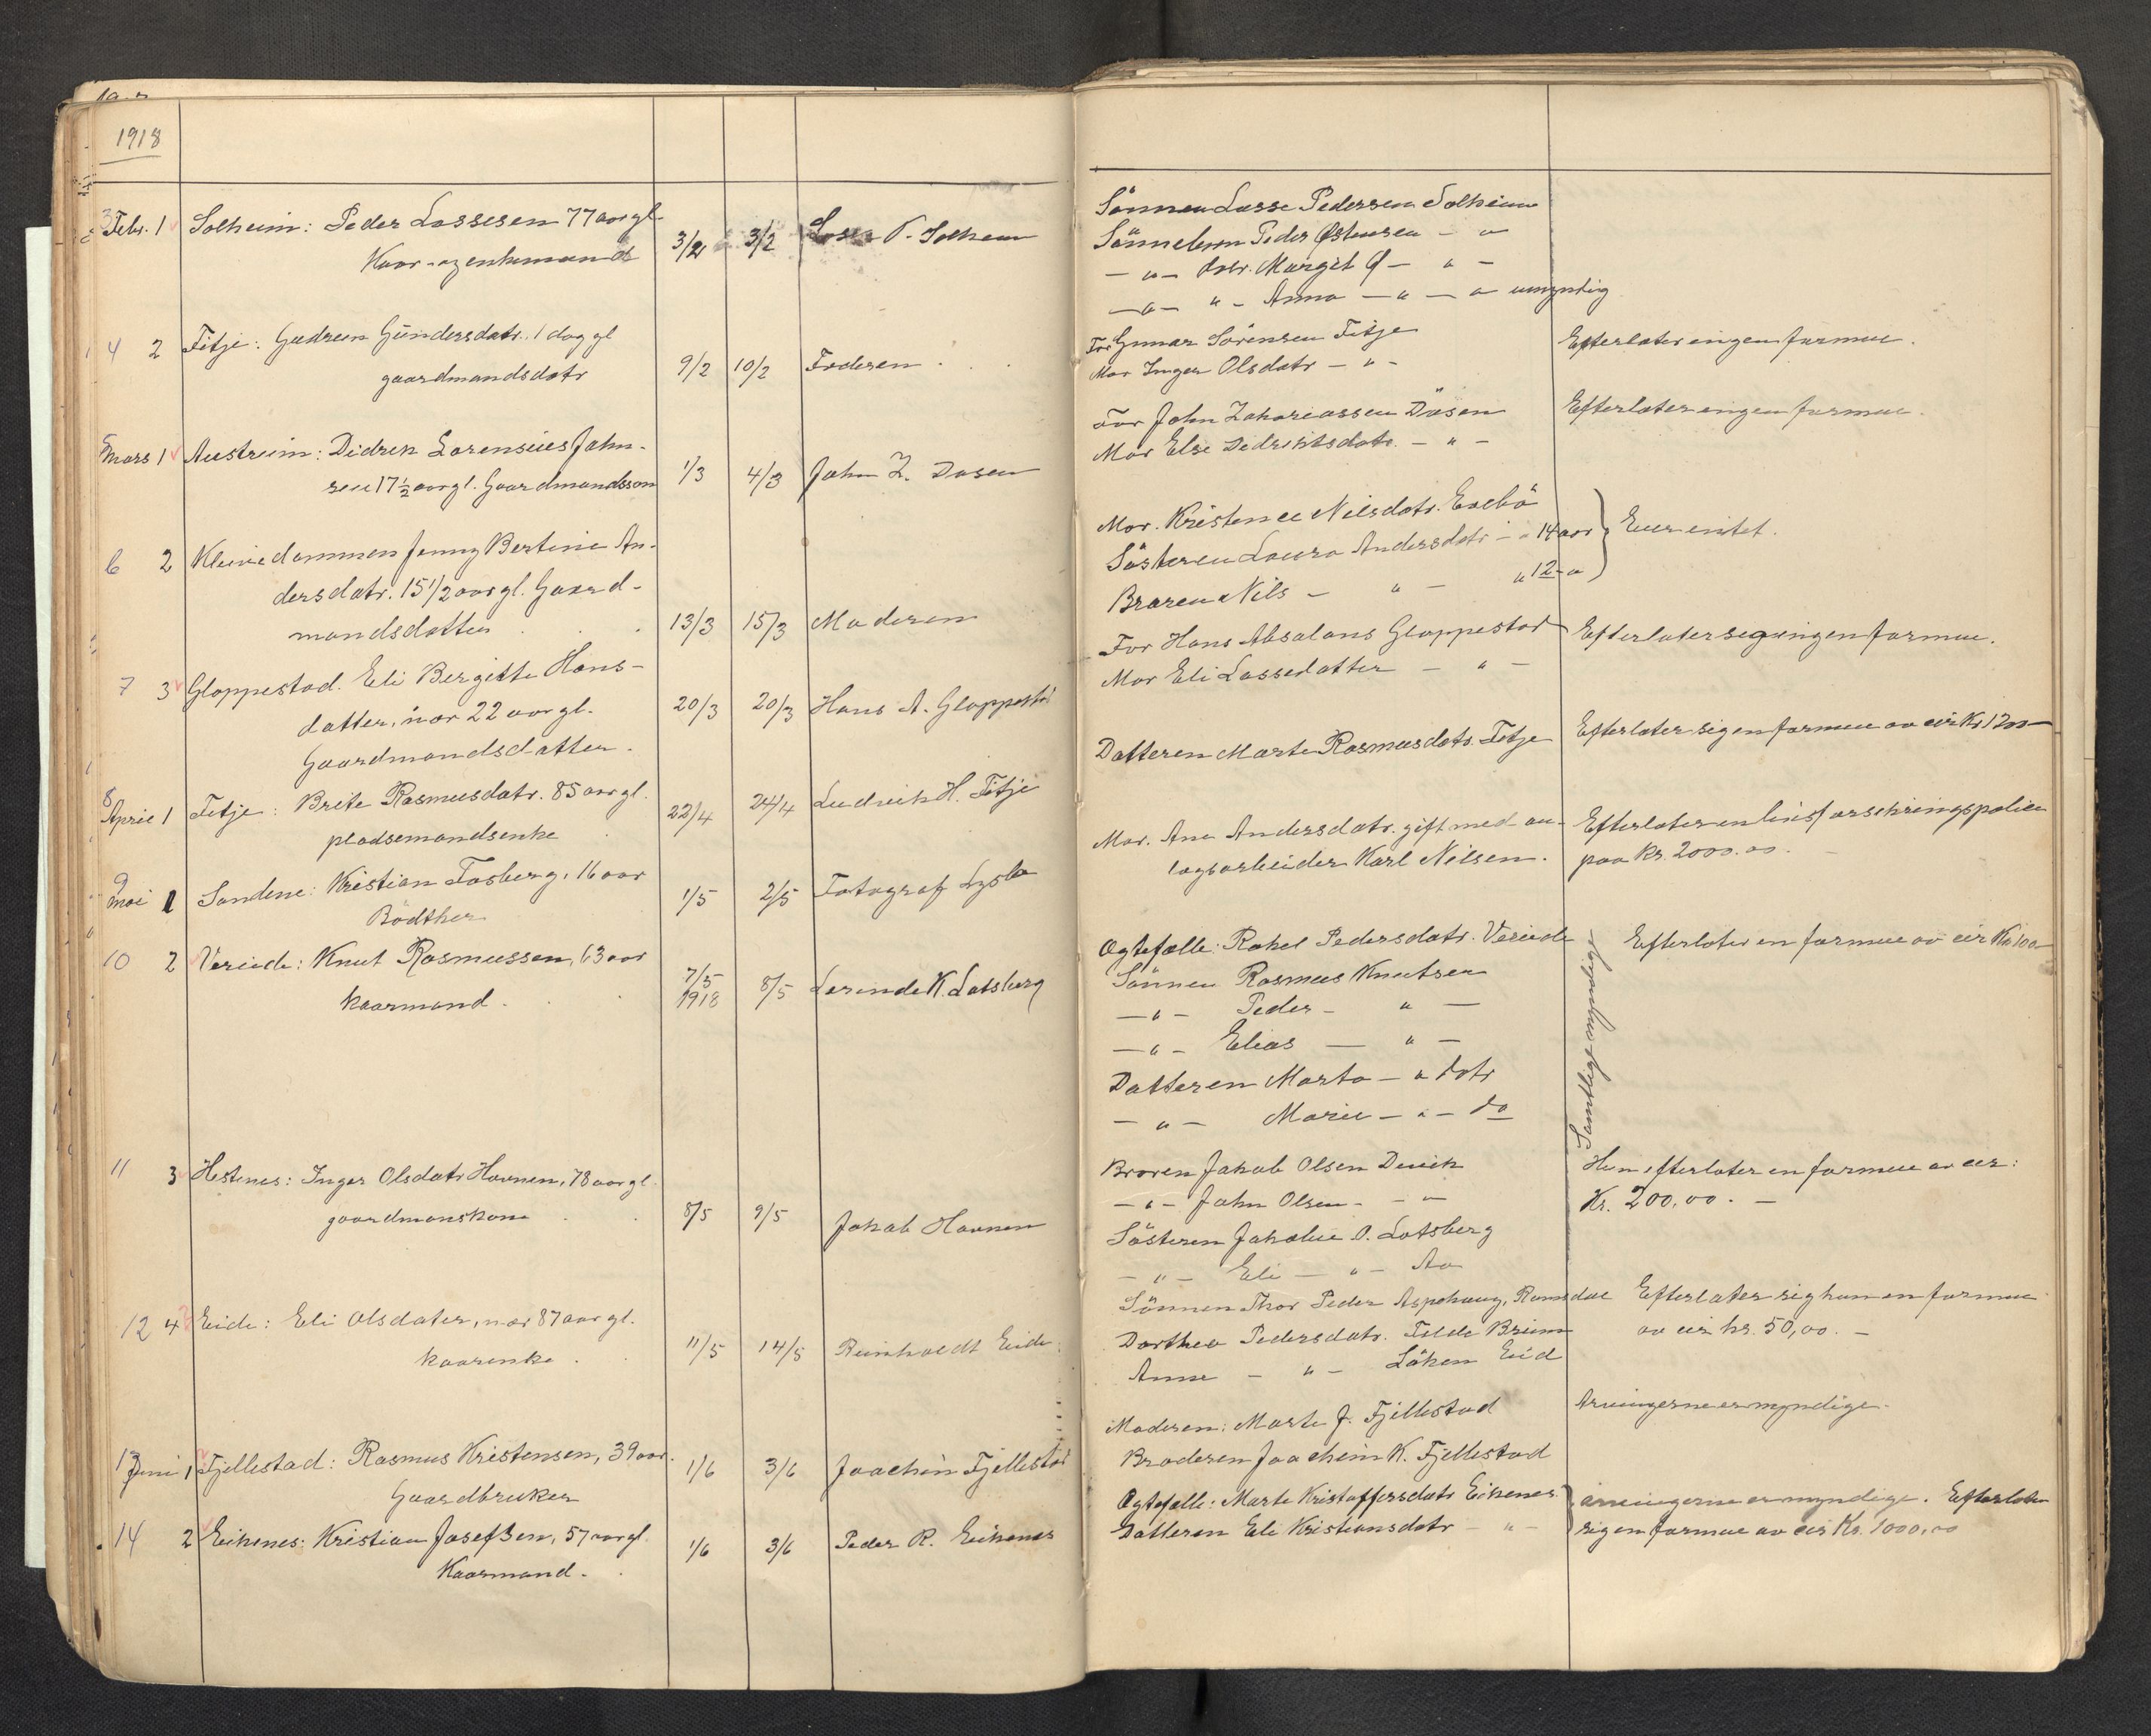 1918
3 Febr. 1 Solheim: Peder Lassesen 77 aar gl.
Kaar- og enkemand 3/2 3/2 Lasse P. Solheim
4 2 Fitje: Gudrun Gundersdatr. 1 dag gl
gaardmandsdatr 9/2 10/2 Faderen
5 Mars 1 Austreim: Didrik Lorensius John-
sen 17½ aar gl. Gaardmandsson 1/3 4/3 John Z. Dosen
6 2 Kleivedammen Jenny Bertine An-
dersdatr. 15 1/2 aar gl. Gaard-
mandsdatter 13/3 15/3 Moderen
7 3 Gloppestad. Eli Bergitte Hans-
datter, nær 22 aar gl. 20/3 20/3 Hans A. Gloppestad
Gaardmandsdatter.
8 April 1 Fitje: Brite Rasmusdatr. 85 aar gl.
pladsemandsenke 22/4 24/4 Ludvik H. Fitje
9 Mai 1 Sandene: Kristian Fosberg, 16 aar
Bödtker 1/5 2/5 Fotograf
10 2 Vereide: Knut Rasmussen, 63 aar
kaarmand. 7/5 1918 8/5 K. Lotsberg
11 3 Hestenes: Inger Olsdatr Havnen, 78 aar gl.
gaardmanskone 8/5 9/5 Jakob Havnen
12 4 Eide: Eli Olsdater, nær 87 aar gl.
kaarenke. 11/5 14/5 Reinholdt Eide
13 Juni 1 Fjellestad: Rasmus Kristensen, 39 aar.
Gaardbruker 1/6 3/6 Joachim Fjellestad
14 2 Eikenes: Kristian Josefsen, 57 aar gl.
Kaarmand. 1/6 3/6 Peder R. Eikenes
Sönnen Lasse Pedersen Solheim
Sönnebørn Peder Østensen - " -
- " - datr. Margit Ø - " -
- " - " - Anna - " - " umyndig
Far Gunnar Sörensen Fitje Efterlater ingen formue.
Mor Inger Olsdatr - " -
Far John Zakariassen Dösen Efterlater ingen formue.
Mor Else Didriksdatr. - " -
Mor. Kristense Nilsdatr. Evebö
Söstren Laura Andersdatr - " 14 aar Eier intet.
Broren Nils - " - " 12 - "
Far Hans Absalons Gloppestad Efterlater seg ingen formue.
Mor Eli Lassedatter - " -
Datteren Marte Rasmusdatr. Fitje Efterlater sig en formue av cir Kr 1200 -
Mor. Ane Andersdatr. gift med an- Efterlater en livsforsekringspolice
lægsarbeider Karl Nilsen. paa Kr. 2000.00.
Ægtefælle: Rakel Pedersdatr. Vereide Efterlater en formue av cir Kr 100
Sönnen Rasmus Knutsen
- " - Peder - " -
- " - Elias - " -
Datteren Marta - " datr
- " - Marie - " - do
Samtlige myndige
Broren Jakob Olsen Devik Hun efterlater en formue av cir:
- " - John Olsen - - " Kr. 200,00. -
Sösteren Jakobie O. Lotsberg
- " - Eli - " - Aa
Sönnen Thor Peder Aspehaug, Romsdal Efterlater sig hun en formue
Dorthea Pedersdatr. Felde Breim av cir kr. 50,00. -
Anne - " - Löken Eid
Moderen: Marte J. Fjellestad Arvingerne er myndige.
Broderen Joachim K. Fjellestad
Ægtefælle: Marte Kristoffersdatr Eikenes arvingerne er myndige. Efterlater
Datteren Eli Kristiansdatr - " - sig en formue av cir Kr. 1000,00